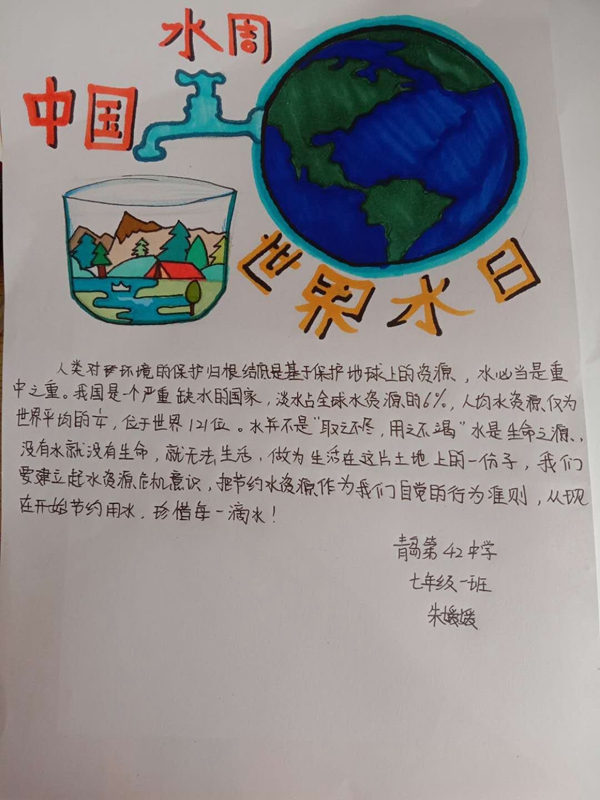 水周
中国
世界水日
人类对于环境的保护归根结底是基于保护地球上的资源，水必当是重
中之重。我国是一个严重缺水的国家，淡水占全球水资源的6%，人均水资源仅为
世界平均的，位于世界121位。水并不是“取之不尽，用之不竭”水是生命之源，
没有水就没有生命，就无法生活，做为生活在这片土地上的一份子，我们
要建立起水资源危机意识，把节约水资源作为我们自觉的行为准则，从现
在开始节约用水，珍惜每一滴水！
青岛第42中学
七年级一班
朱媛媛